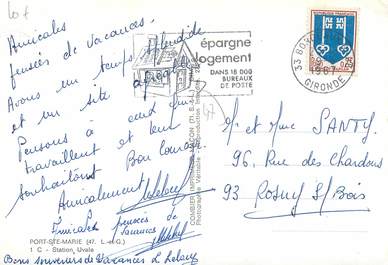 Amicales
pensées de vacances.
Avons un temps splendide
et un site
Pensons à ceux qui
travaillent et leur
souhaitons Bon courage.
Amicalement
Amicales pensées de
vacances
PORT-STE-MARIE (47. L.-et-G.)
1 C - Station Uvale
Bons souvenirs de Vacances
épargne
logement
DANS 18 000
BUREAUX
DE POSTE
33
1967
GIRONDE
0,25
COMBIER IMPRIMEUR MACON
Mr et Mme SANTY
96, Rue des Chardons
93 Rosny S/Bois